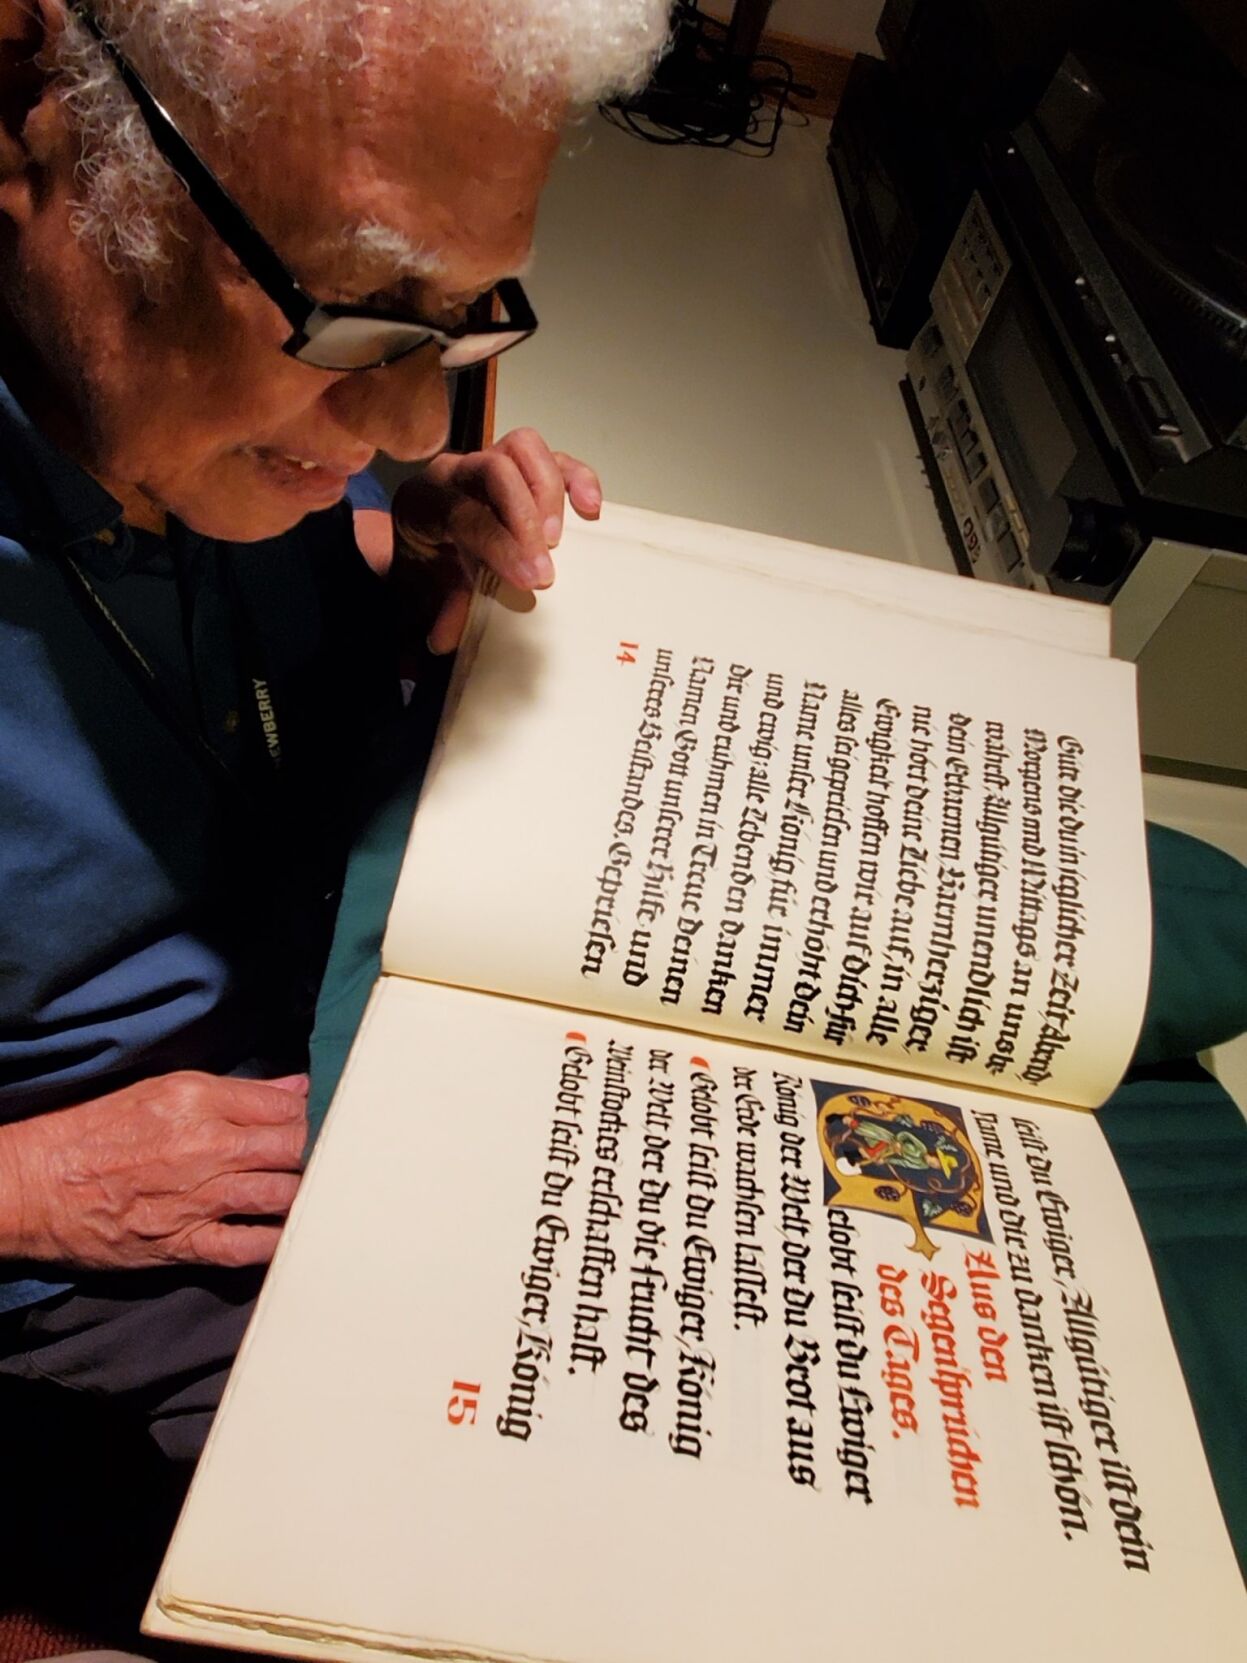 Güte die du in jeglicher Zeit, Abend,
Morgens und Mittags an uns be-
währst, Allgütiger, unendlich ist
dein Erbarmen, Barmherziger,
nie hört deine Liebe auf, in alle
Ewigkeit hoffen wir auf dich. Für
alles sei gepriesen und erhöht dein
Name unser König, für immer
und ewig; alle Lebenden danken
dir und rühmen in Treue deinen
Namen, Gott unserer Hilfe und
unseres Beistandes. Gepriesen
14
seist du Ewiger, Allgütiger ist dein
Name und dir zu danken ist schön.
Aus den
Segensprüchen
des Tages.
Gelobt seist du Ewiger
König der Welt, der du Brot aus
der Erde wachsen lässest.
Gelobt seist du Ewiger, König
der Welt, der du die Frucht des
Weinstockes erschaffen hast.
Gelobt seist du Ewiger, König
15
EWBERRY